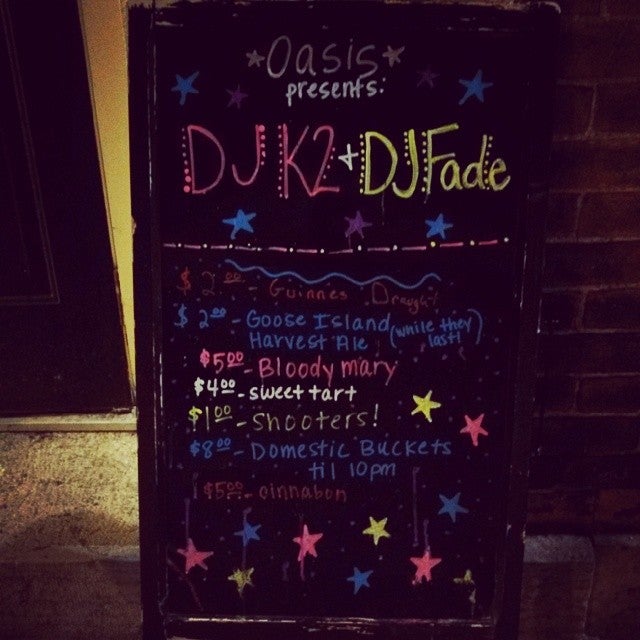 Oasis
presents:
DJ K2 + DJ Fade
$2.00 - Guinnes Draught
$2.00 - Goose Island (while they
Harvest Ale last!)
$5.00 - Bloody mary
$4.00 - sweet tart
$1.00 - Shooters!
$8.00 - Domestic Buckets
til 10pm
$5.00 - cinnabon